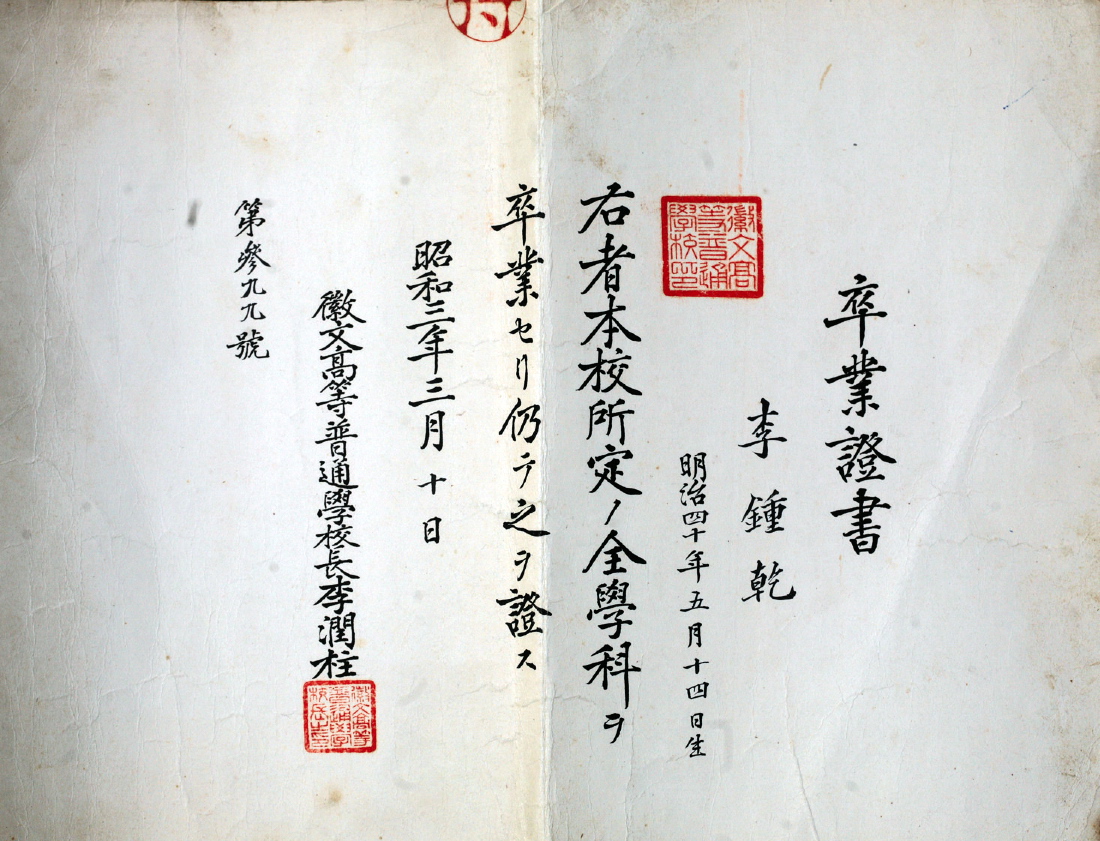 卒業證書
李鍾乾
明治四十年五月十四日生
徽文高
等普通
學校印
右者本校所定ノ全學科ヲ
卒業セリ仍テ之ヲ證ス
昭和三年三月十日
徽文高等普通學校長李潤柱
第參九九號